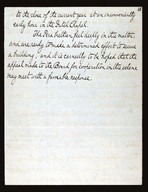 to the close of the current year at an inconveniently
early hour in the Dutch Chapel.
The brethren feel deeply in this matter
and are ready to make a determined effort to secure
a building, and it is earnestly to be hoped that the
appeal made to the Board for cooperation in this scheme
may meet with a favorable response.